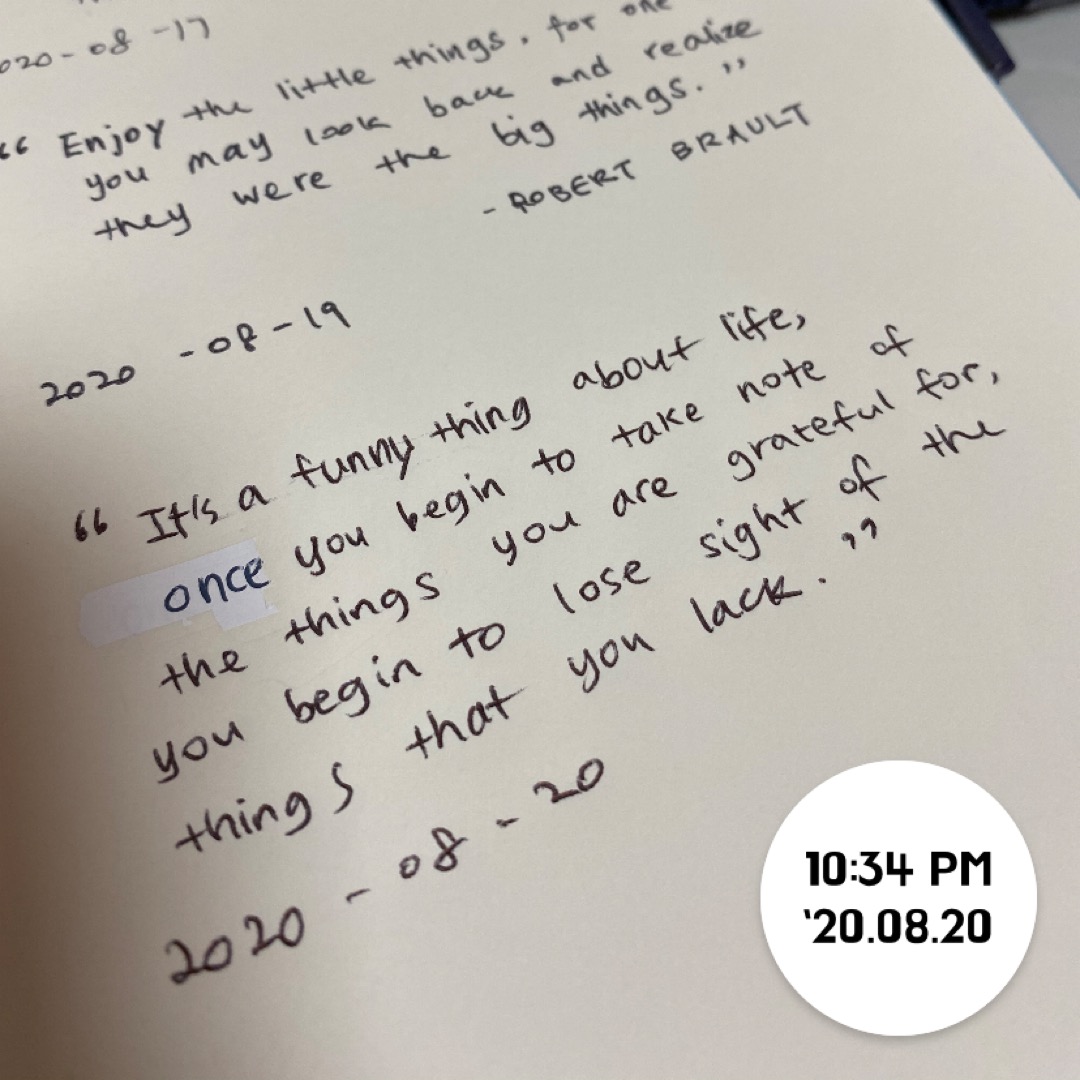 2020-08-17
“Enjoy the little things, for one
you may look back and realize
they were the big things.”
- ROBERT BRAULT
2020-08-19
“It's a funny thing about life,
once you begin to take note of
the things you are grateful for,
you begin to lose sight of the
things that you lack.”
2020-08-20
10:34 PM
'20.08.20